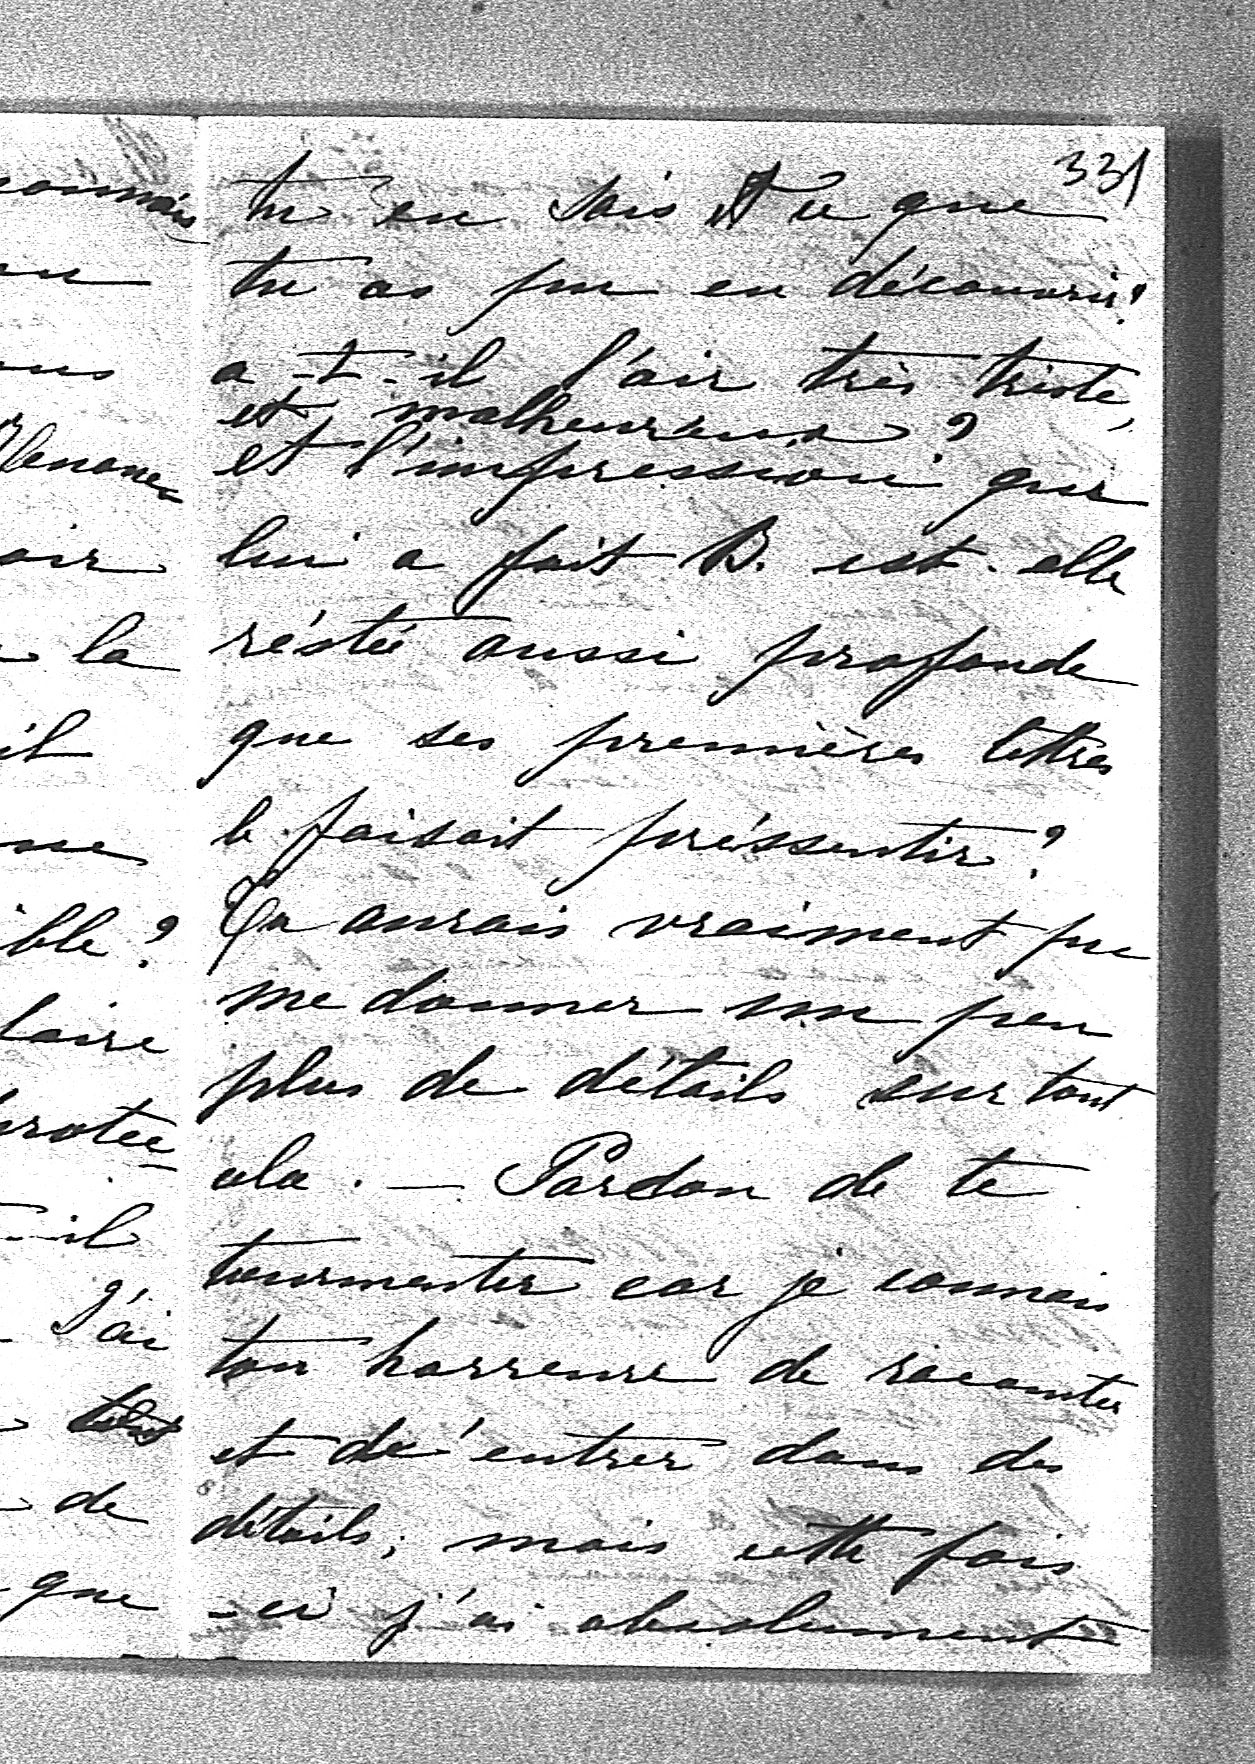 331
tu en sais et ce que
tu as pu en découvrir?
a-t-il l'air très triste,
et malheureux?
et l'impression que
lui a fait B. est-elle
réstée aussi profonde
que ses premières lettres
le faisait préssentir?
Tu aurais vraiment pu
me donner un peu
plus de détails sur tout
cela. — Pardon de te
tourmenter car je connais
ton horreure de raconter
et de d'entrer dans des
détails; mais cette fois
-ci j'ai absolument
connais
la
il
ible?
laire
il
J'ai
de
que